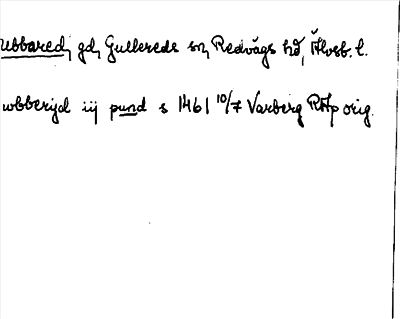 ubbared, gd, Gullereds sn, Redvägs hd, Älvsb. l.
wbberijd iij pund s 1461 10/7 Varberg RAp orig.